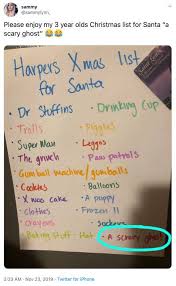 sammy
@sammytylrn_
Please enjoy my 3 year olds Christmas list for Santa "a
scary ghost" 😂😂
Harpers Xmas list
for Santa
• Dr Stuffins • Drinking Cup
• Trolls • Piggles
• Super Man • Leggos
• The grinch • Paw patrols
• Gumball machine/gumballs
• Cookies • Balloons
• X mas cake • A puppy
• Clothes • Frozen II
• Crayons
• Baking Stuff - Hat • A scary ghost
2:03 AM - Nov 23, 2019 · Twitter for iPhone